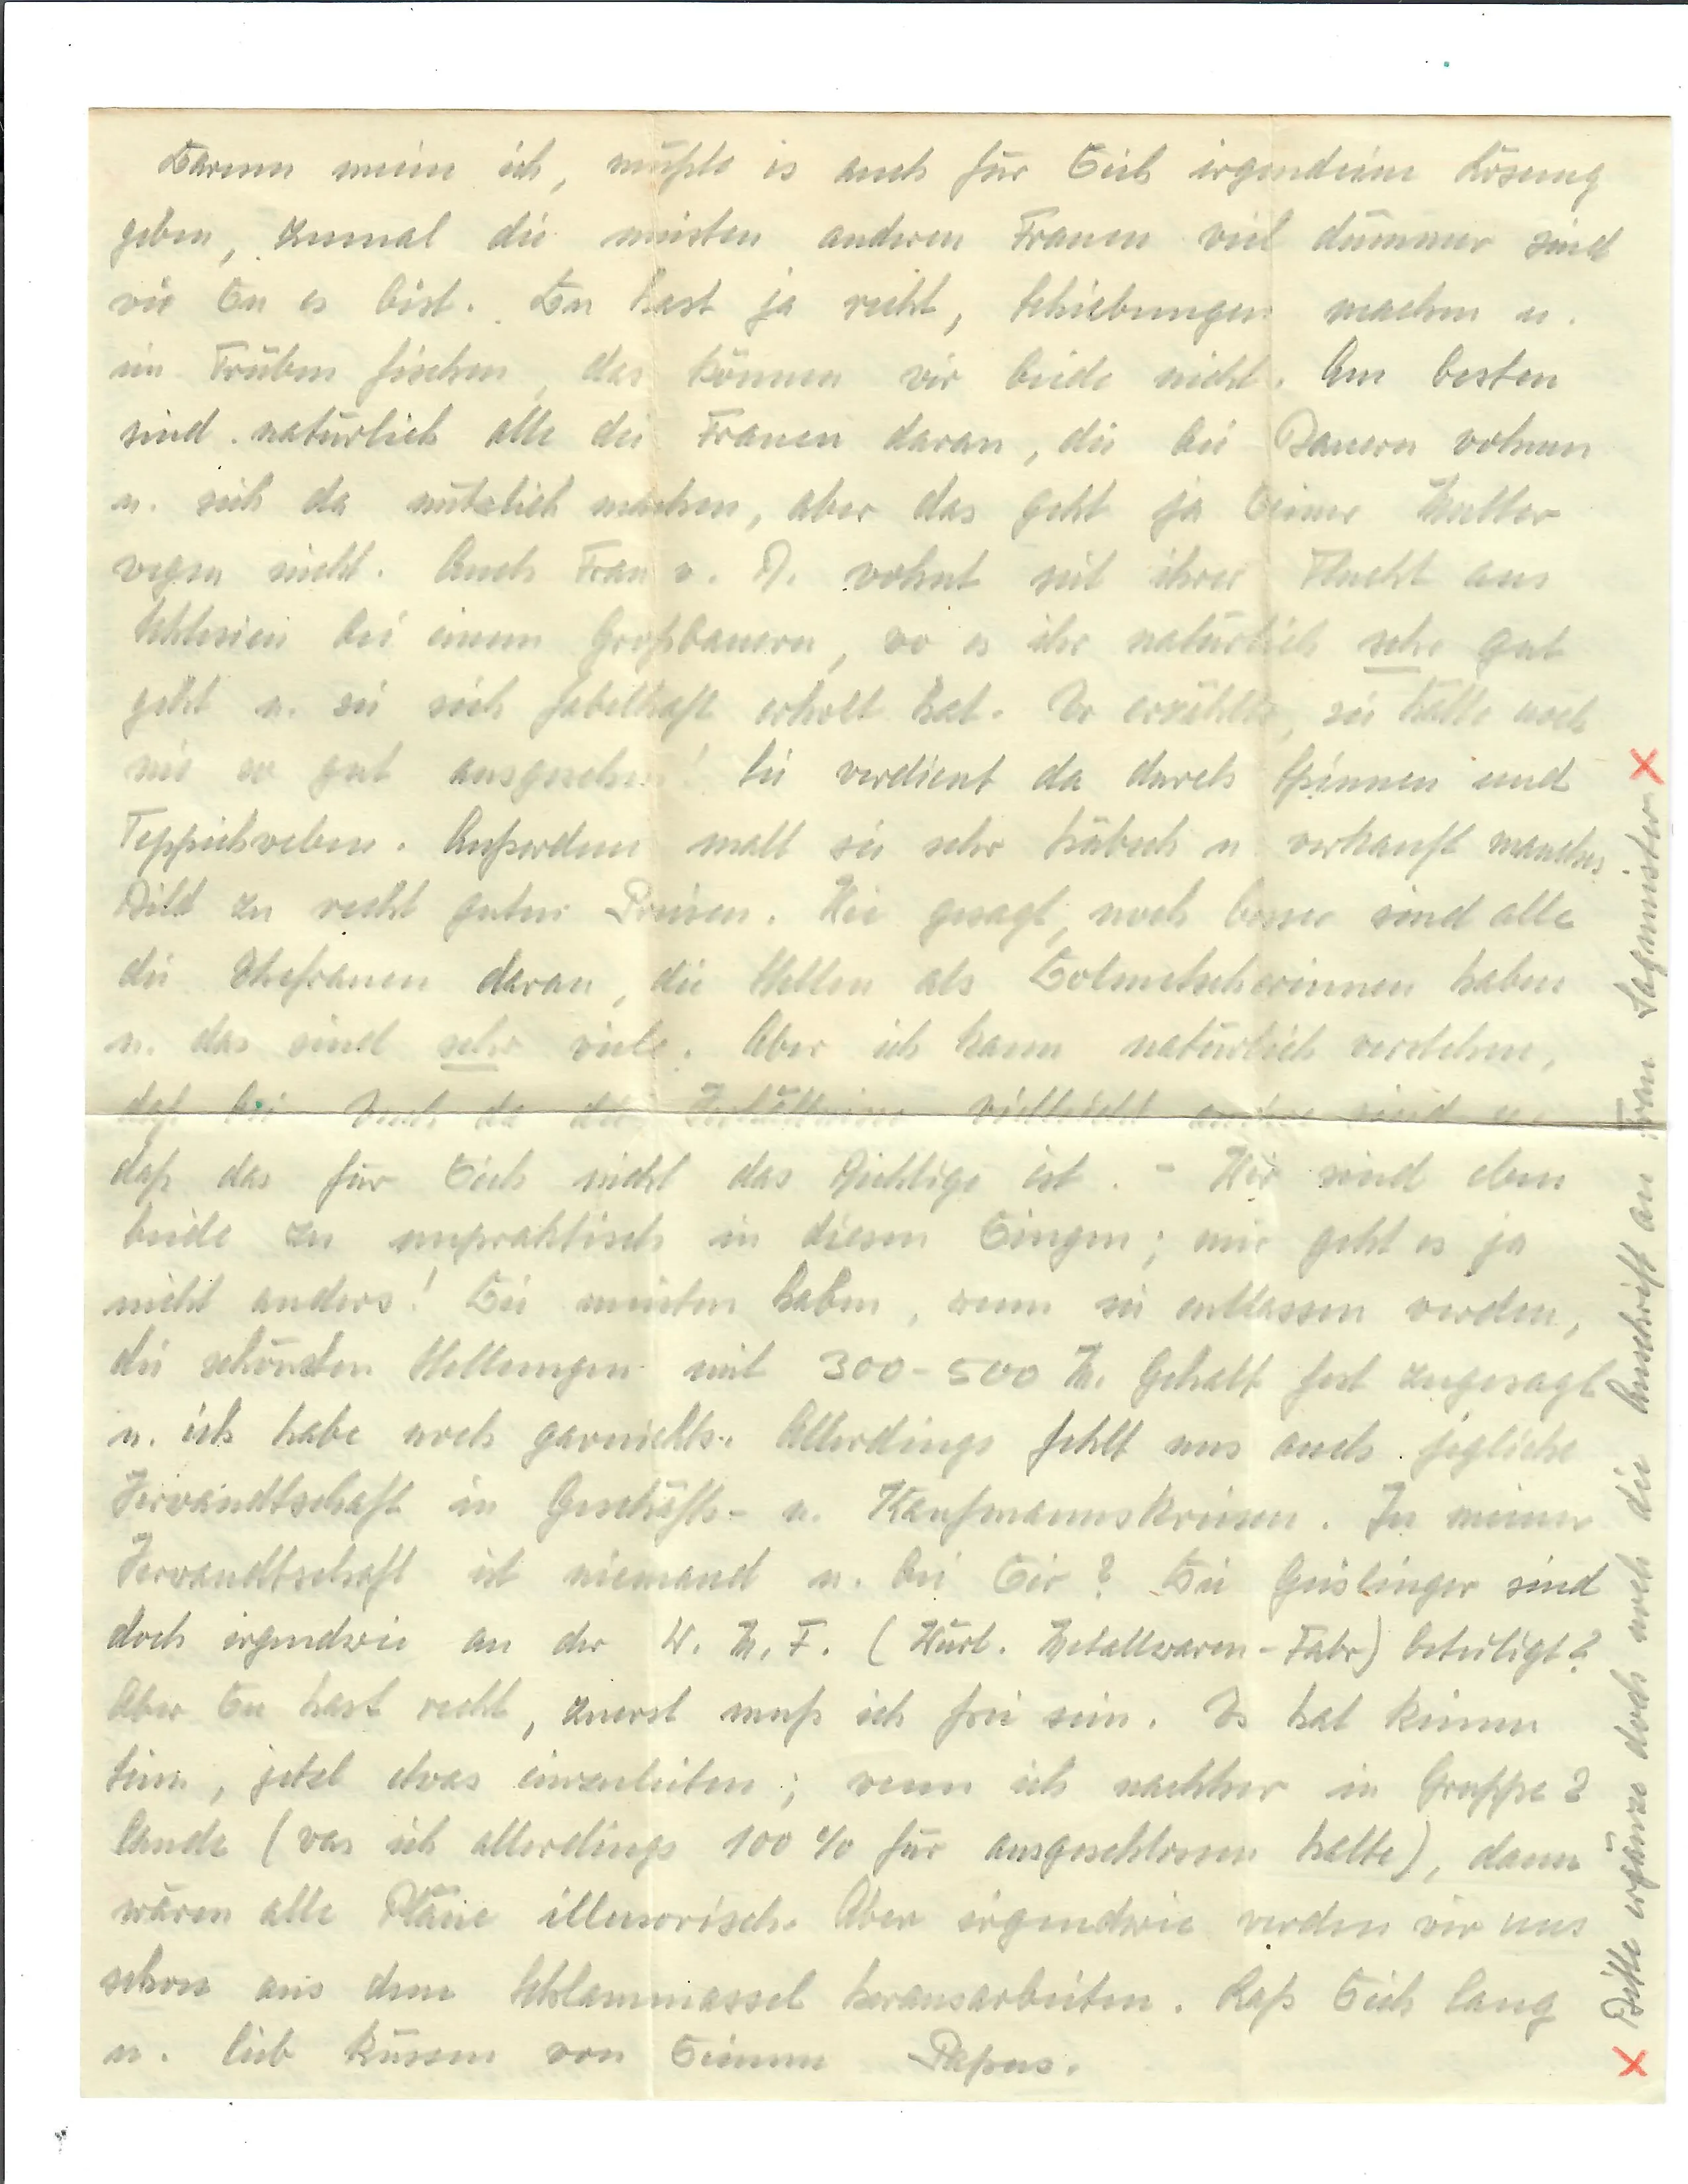 Darum meine ich, müßte es auch für Dich irgendeine Lösung
geben, zumal die meisten anderen Frauen viel dümmer sind
wie Du es bist. Du hast ja recht, Schiebungen machen u.
im Trüben fischen, das können wir beide nicht. Am besten
sind natürlich alle die Frauen daran, die bei Bauern wohnen
u. sich da nützlich machen, aber das geht ja Deiner Mutter
wegen nicht. Auch Frau v. P. wohnt seit ihrer Flucht aus
Schlesien bei einem Großbauern, wo es ihr natürlich sehr gut
geht u. sie sich fabelhaft erholt hat. Er erzählte, sie hätte noch
nie so gut ausgesehen! Sie verdient da durch Spinnen und
Teppichweben. Außerdem malt sie sehr hübsch u. verkauft manches
Bild zu recht guten Preisen. Wie gesagt, noch besser sind alle
die Ehefrauen daran, die Stellen als Dolmetscherinnen haben
u. das sind sehr viele. Aber ich kann natürlich verstehen,
daß bei Euch da die Verhältnisse vielleicht andere sind u.
daß das für Dich nicht das Richtige ist. - Wir sind eben
beide zu unpraktisch in diesen Dingen; mir geht es ja
nicht anders! Die meisten haben, wenn sie entlassen werden,
die schönsten Stellungen mit 300-500 M. Gehalt fest zugesagt
u. ich habe noch garnichts. Allerdings fehlt uns auch jegliche
Verwandtschaft in Geschäfts- u. Kaufmannskreisen. In meiner
Verwandtschaft ist niemand u. bei Dir? Die Geislinger sind
doch irgendwie an der W. M. F. (Würt. Metallwaren-Fabr) beteiligt?
Aber Du hast recht, zuerst muß ich frei sein. Es hat keinen
Sinn, jetzt etwas einzuleiten; wenn ich nachher in Gruppe 2
lande (was ich allerdings 100 % für ausgeschlossen halte), dann
wären alle Pläne illusorisch. Aber irgendwie werden wir uns
schon aus dem Schlammassel herausarbeiten. Laß Dich lang
u. lieb küssen von Deinem Papus.
x Bitte ergänze doch noch die Anschrift an Frau x